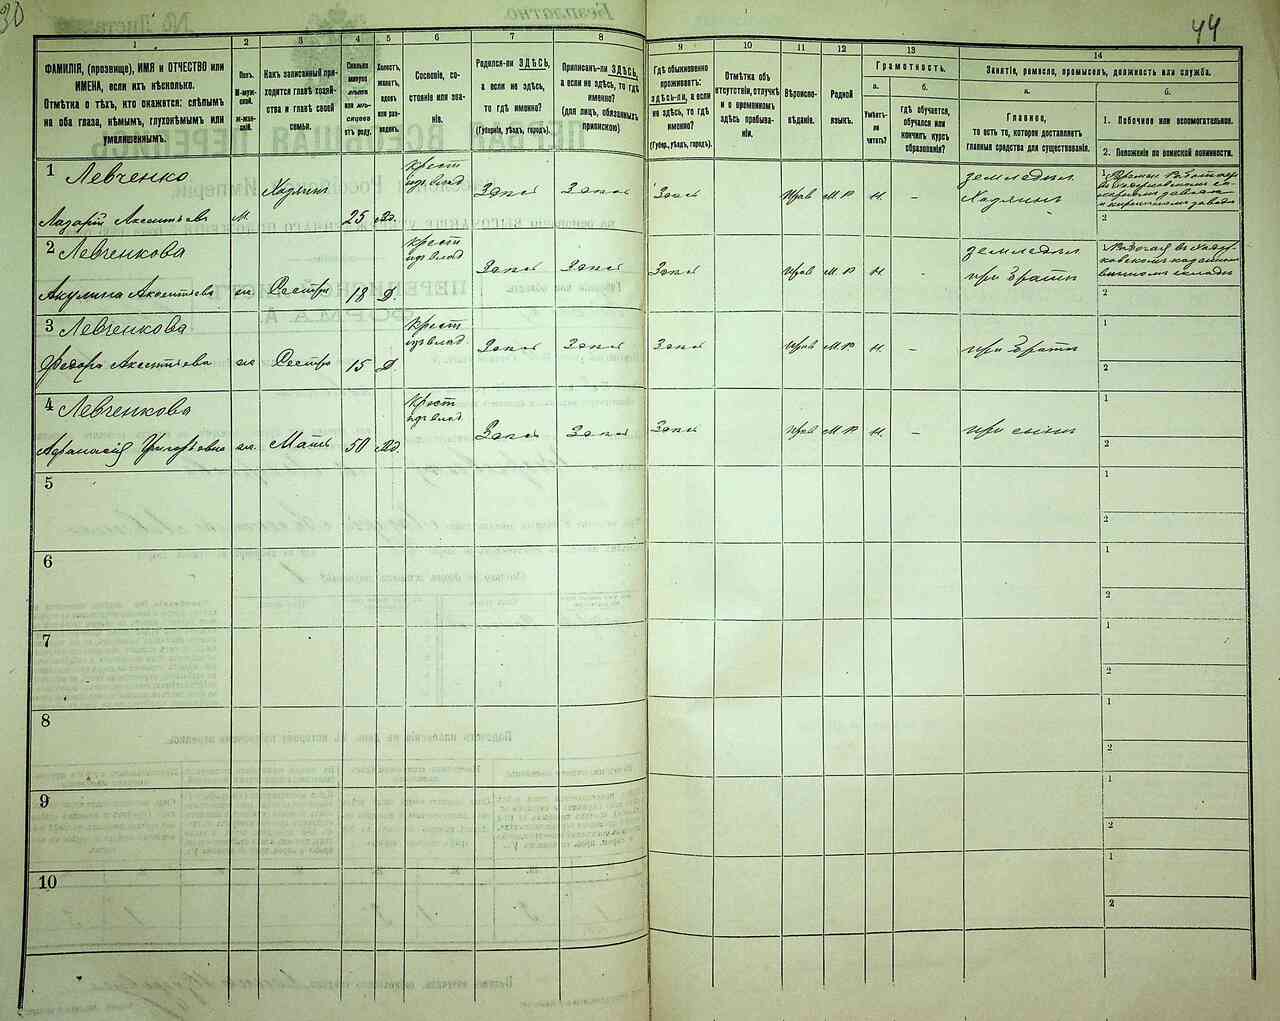 30
44
1
2
3
4
5
6
7
8
9
10
11
12
13
14
ФАМИЛІЯ, (прозвище), ИМЯ и ОТЧЕСТВО или
ИМЕНА, если ихъ нѣсколько.
Отмѣтка о тѣхъ, кто окажется: слѣпымъ
на оба глаза, нѣмымъ, глухонѣмымъ или
умалишеннымъ.
Полъ.
М-муж-
ской.
Ж-жен-
скій.
Какъ записанный при-
ходится главѣ хозяй-
ства и главѣ своей
семьи.
Сколько
минуло
лѣтъ
или мѣ-
сяцевъ
отъ роду.
Холостъ,
женатъ,
вдовъ
или раз-
веденъ.
Сословіе, со-
стояніе или зва-
ніе.
Родился-ли ЗДѢСЬ,
а если не здѣсь,
то гдѣ именно?
(Губернія, уѣздъ, городъ).
Приписанъ-ли ЗДѢСЬ,
а если не здѣсь, то гдѣ
именно?
(для лицъ, обязанныхъ
припискою)
Гдѣ обыкновенно
проживаетъ:
здѣсь-ли, а если
не здѣсь, то гдѣ
именно?
(Губер., уѣздъ, городъ).
Отмѣтка объ
отсутствіи, отлучкѣ
и о временномъ
здѣсь пребыва-
ніи.
Вѣроиспо-
вѣданіе.
Родной
языкъ.
Грамотность.
а.
б.
Умѣетъ-
ли
читать?
гдѣ обучается,
обучался или
кончилъ курсъ
образованія?
Занятіе, ремесло, промыселъ, должность или служба.
а.
б.
Главное,
то есть то, которое доставляетъ
главныя средства для существованія.
1. Побочное или вспомогательное.
2. Положеніе по воинской повинности.
1 Левченко
Лазарій Аксентьевъ
М.
Хозяинъ
25
Вд.
Крест
изъ влад
Здѣсь
Здѣсь
Здѣсь
Прав
М.Р.
Н.
–
земледѣл
Хозяинъ
1
2
2 Левченкова
Акулина Аксентьева
ж.
Сестра
18
Д.
Крест
изъ влад
Здѣсь
Здѣсь
Здѣсь
Прав
М.Р.
Н.
–
земледѣл
при братѣ
1
2
3 Левченкова
Ѳедора Аксентьева
ж.
Сестра
15
Д.
Крест
изъ влад
Здѣсь
Здѣсь
Здѣсь
Прав
М.Р.
Н.
–
при братѣ
1
2
4 Левченкова
Афанасія Григорьевна
ж.
Мать
50
Вд.
Крест
изъ влад
Здѣсь
Здѣсь
Здѣсь
Прав
М.Р.
Н.
–
при сынѣ
1
2
5
1
2
6
1
2
7
1
2
8
1
2
9
1
2
10
1
2